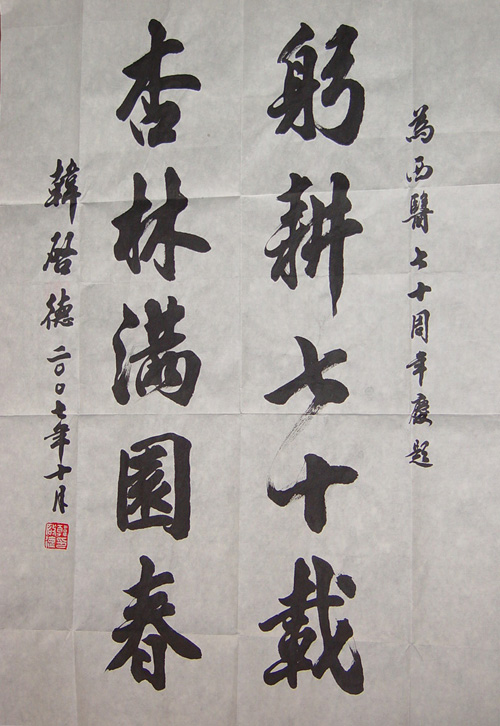 為西醫七十周年慶題
躬耕七十載
杏林满園春
韓啓德二〇〇七年十月